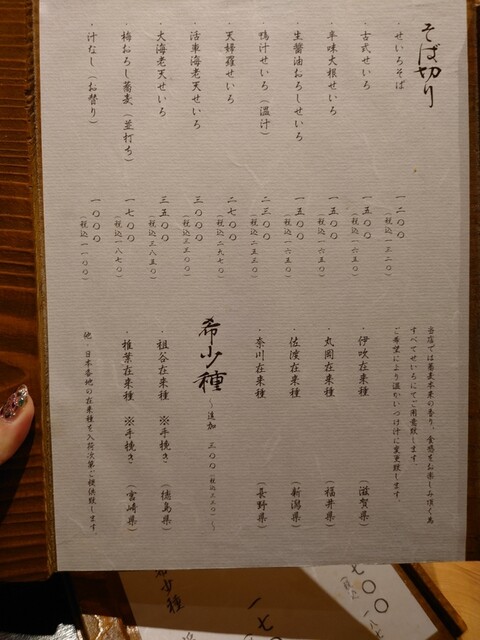 そば切り
・せいろそば 一二〇〇
（税込一三二〇）
・古式せいろ 一五〇〇
（税込一六五〇）
・辛味大根せいろ 一五〇〇
（税込一六五〇）
・生醬油おろしせいろ 一五〇〇
（税込一六五〇）
・鴨汁せいろ（温汁） 二三〇〇
（税込二五三〇）
・天婦羅せいろ 二七〇〇
（税込二九七〇）
・活車海老天せいろ 三〇〇〇
（税込三三〇〇）
・大海老天せいろ 三五〇〇
（税込三八五〇）
・梅おろし蕎麦（並打ち） 一七〇〇
（税込一八七〇）
・汁なし（お替り） 一〇〇〇
（税込一一〇〇）
当店では蕎麦本来の香り、食感をお楽しみ頂く為
すべてせいろにてご用意致します。
ご希望により温かいつけ汁に変更致します。
・伊吹在来種 （滋賀県）
・丸岡在来種 （福井県）
・佐渡在来種 （新潟県）
・奈川在来種 （長野県）
希少種 〜追加 三〇〇（税込三三〇）〜
・祖谷在来種 ※手挽き （徳島県）
・椎葉在来種 ※手挽き （宮崎県）
他・日本各地の在来種を入荷次第ご提供致します。